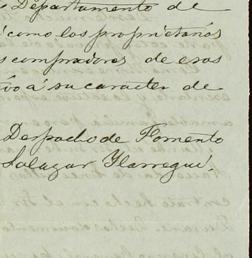 Departamento de
como los propietarios
compradores de esos
a su caracter de
Despacho de Fomento
Salazar Ylarregui.